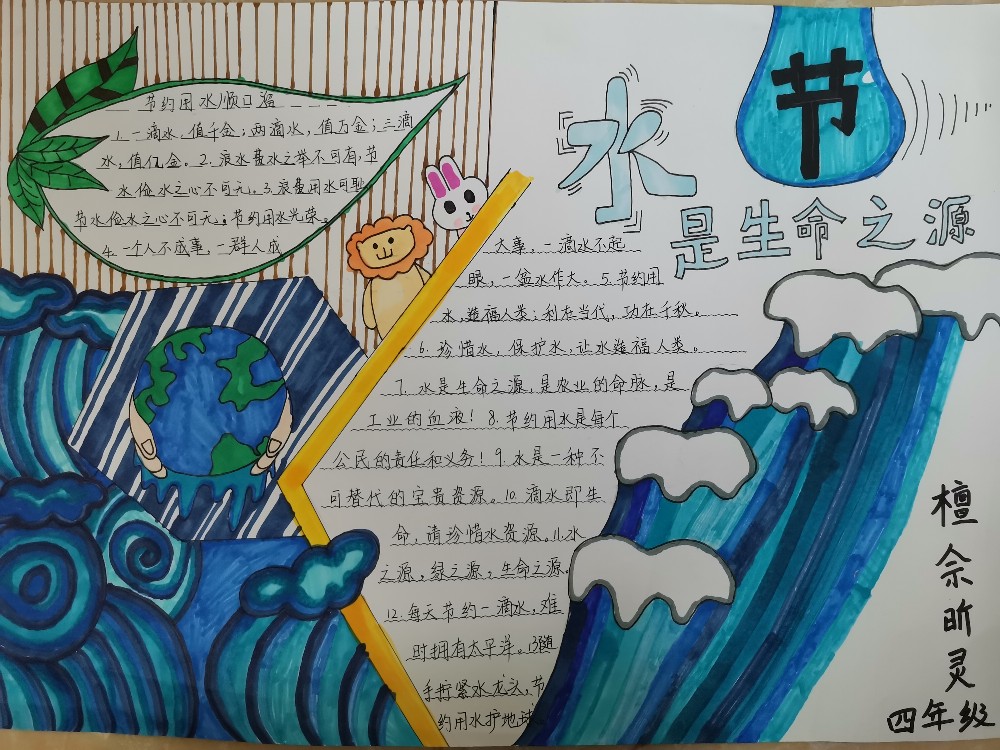 节约用水顺口溜
1.一滴水,值千金;两滴水,值万金;三滴
水,值亿金。2.浪水费水之举不可有,节
水俭水之心不可无。3.浪费用水可耻
节水俭水之心不可无;节约用水光荣。
4.一个人不成事,一群人成
水
节
是生命之源
大事,一滴水不起
眼,一盆水作大。5.节约用
水,造福人类;利在当代,功在千秋。
6.珍惜水,保护水,让水造福人类。
7.水是生命之源,是农业的命脉,是
工业的血液!8.节约用水是每个
公民的责任和义务!9.水是一种不
可替代的宝贵资源。10.滴水即生
命,请珍惜水资源。11.水
之源,绿之源,生命之源。
12.每天节约一滴水,难
时拥有太平洋。13随
手拧紧水龙头,节
约用水护地球
檀佘昕灵
四年级